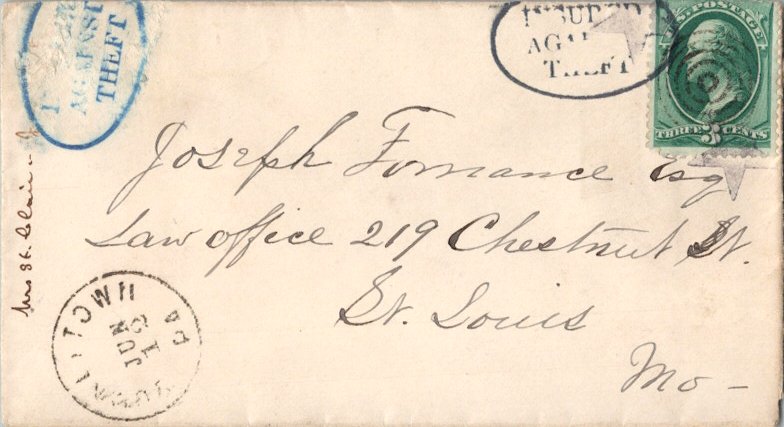 INSURED
AGAINST
THEFT
U.S. POSTAGE
THREE 3 CENTS
AGAINST
THEFT
Joseph Fornance Esq
Law office 219 Chestnut St.
St. Louis
Mo -
Mrs St. Clair
TOWN
PA
JUN